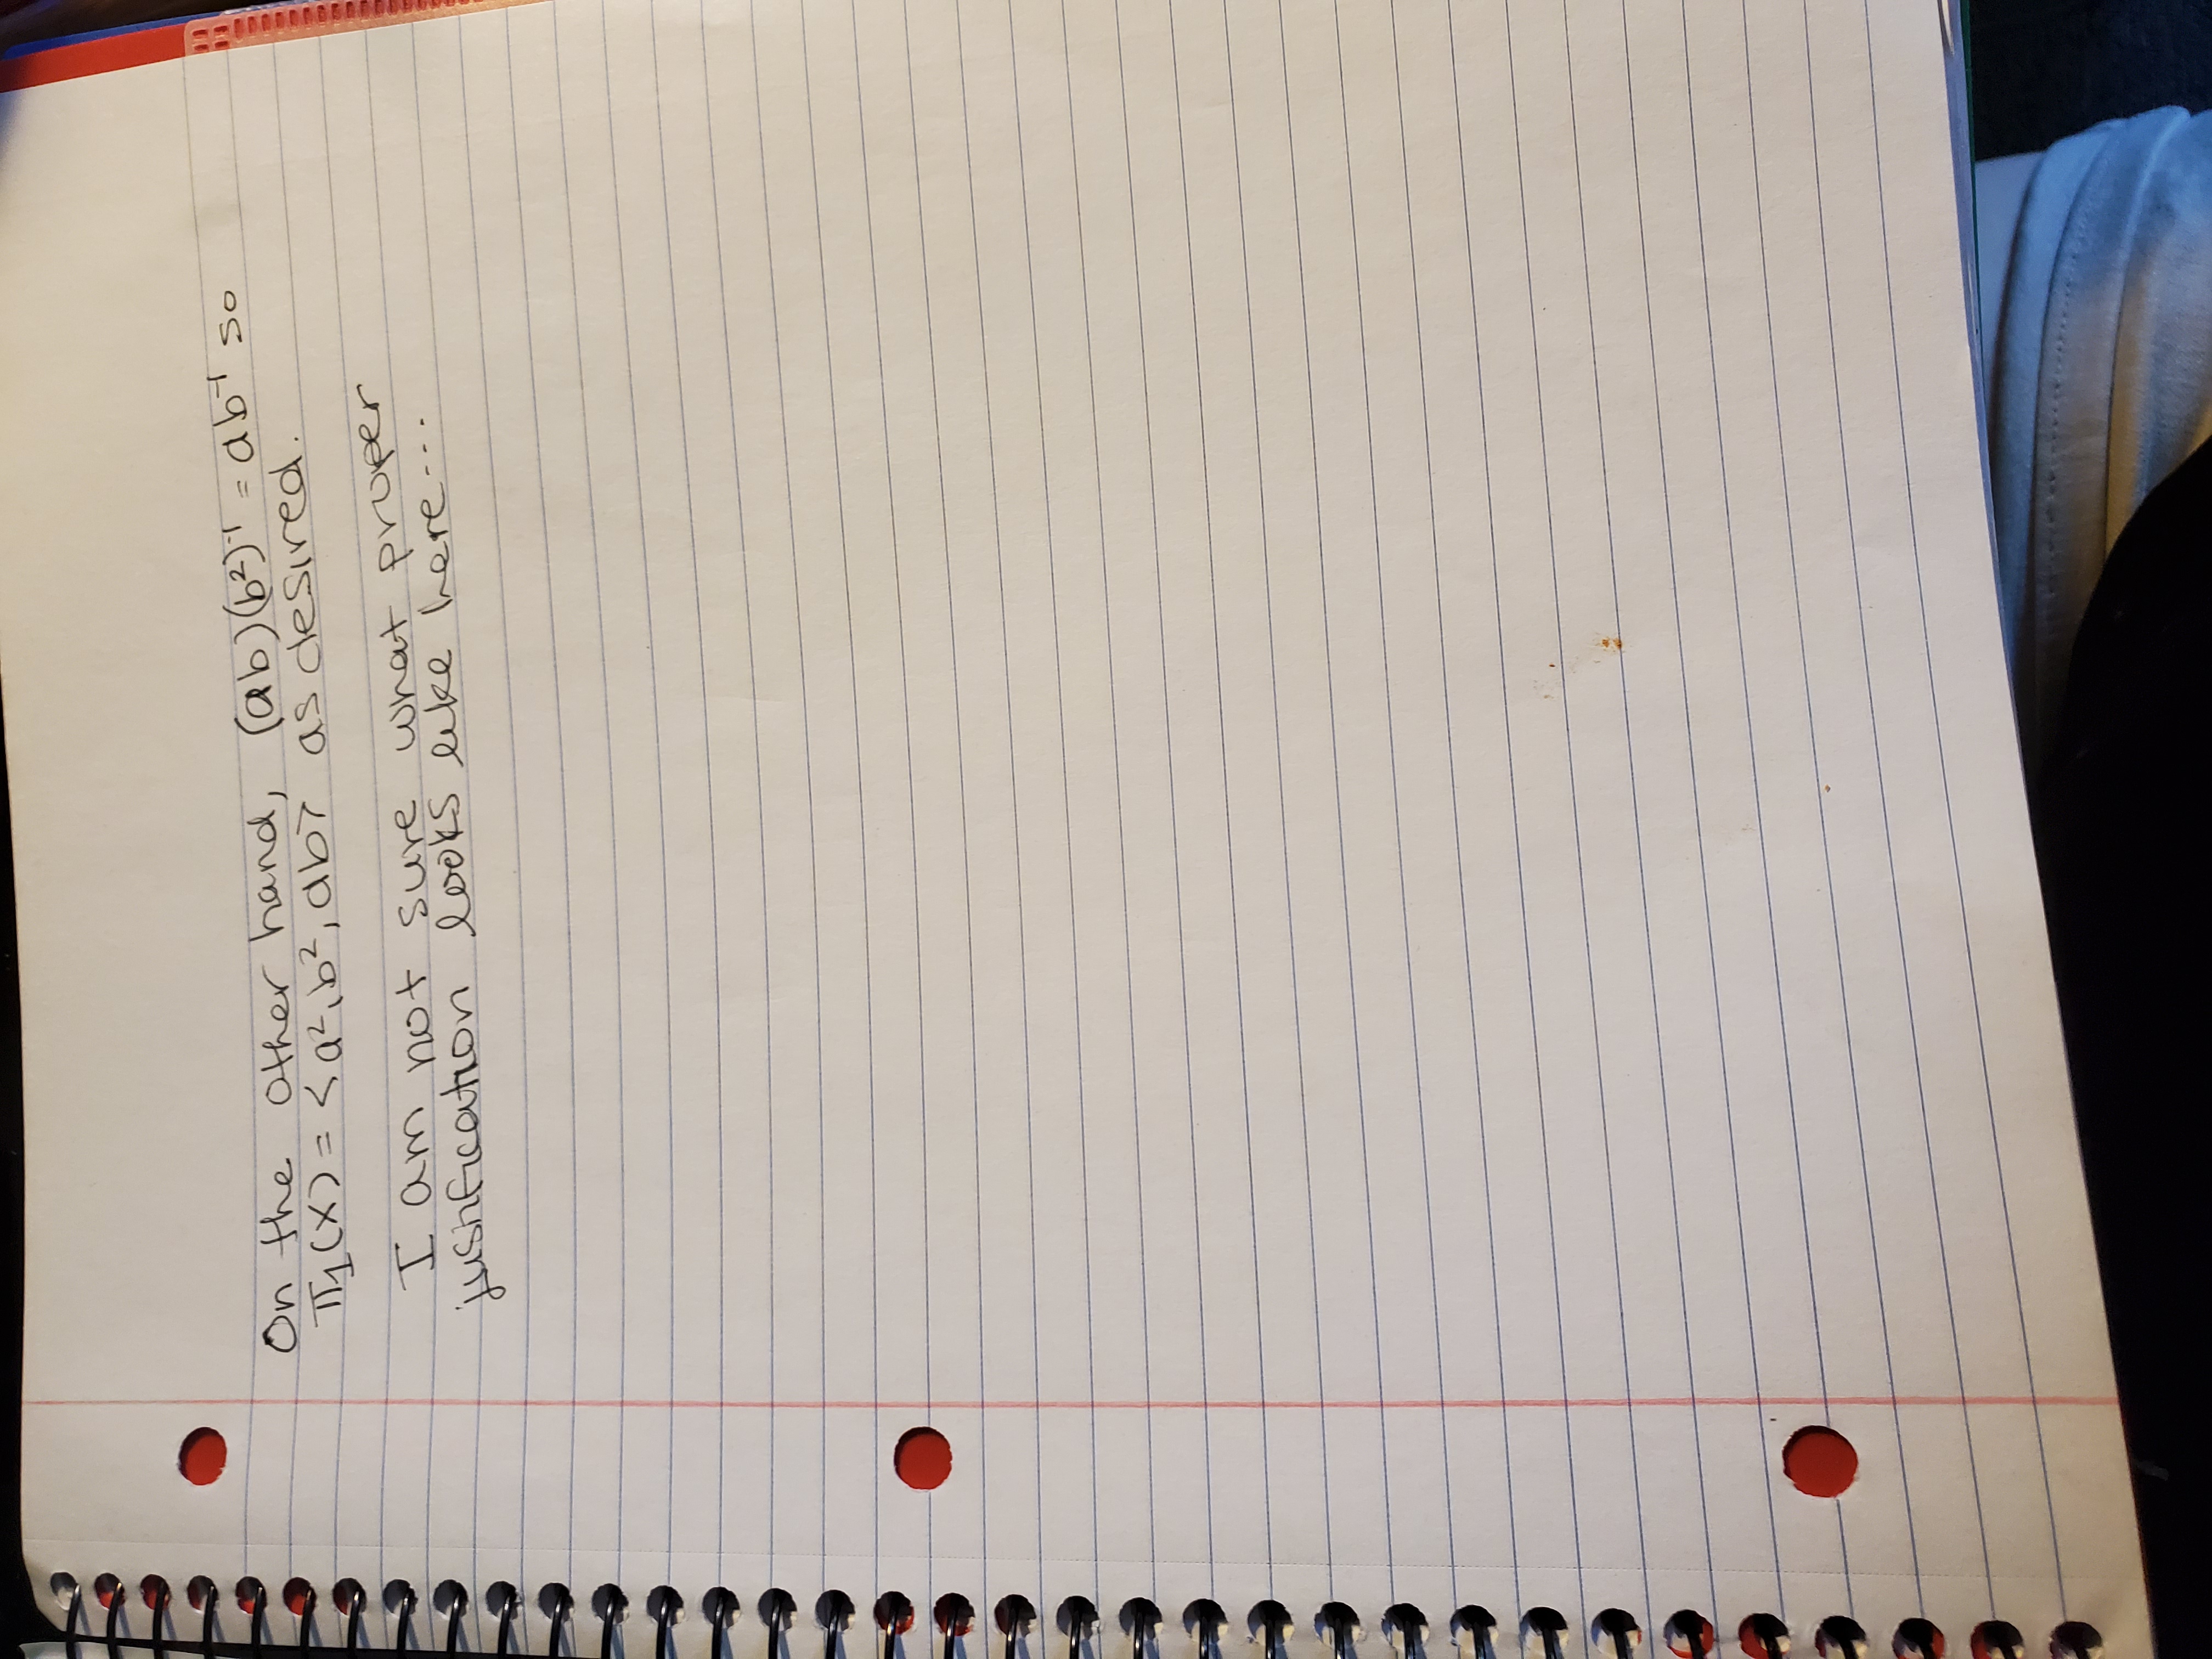 On the other hand, (ab)(b²)⁻¹ = ab⁻¹ so
π₁(X) = <a², b², ab> as desired.
I am not sure what proper
justification looks like here...